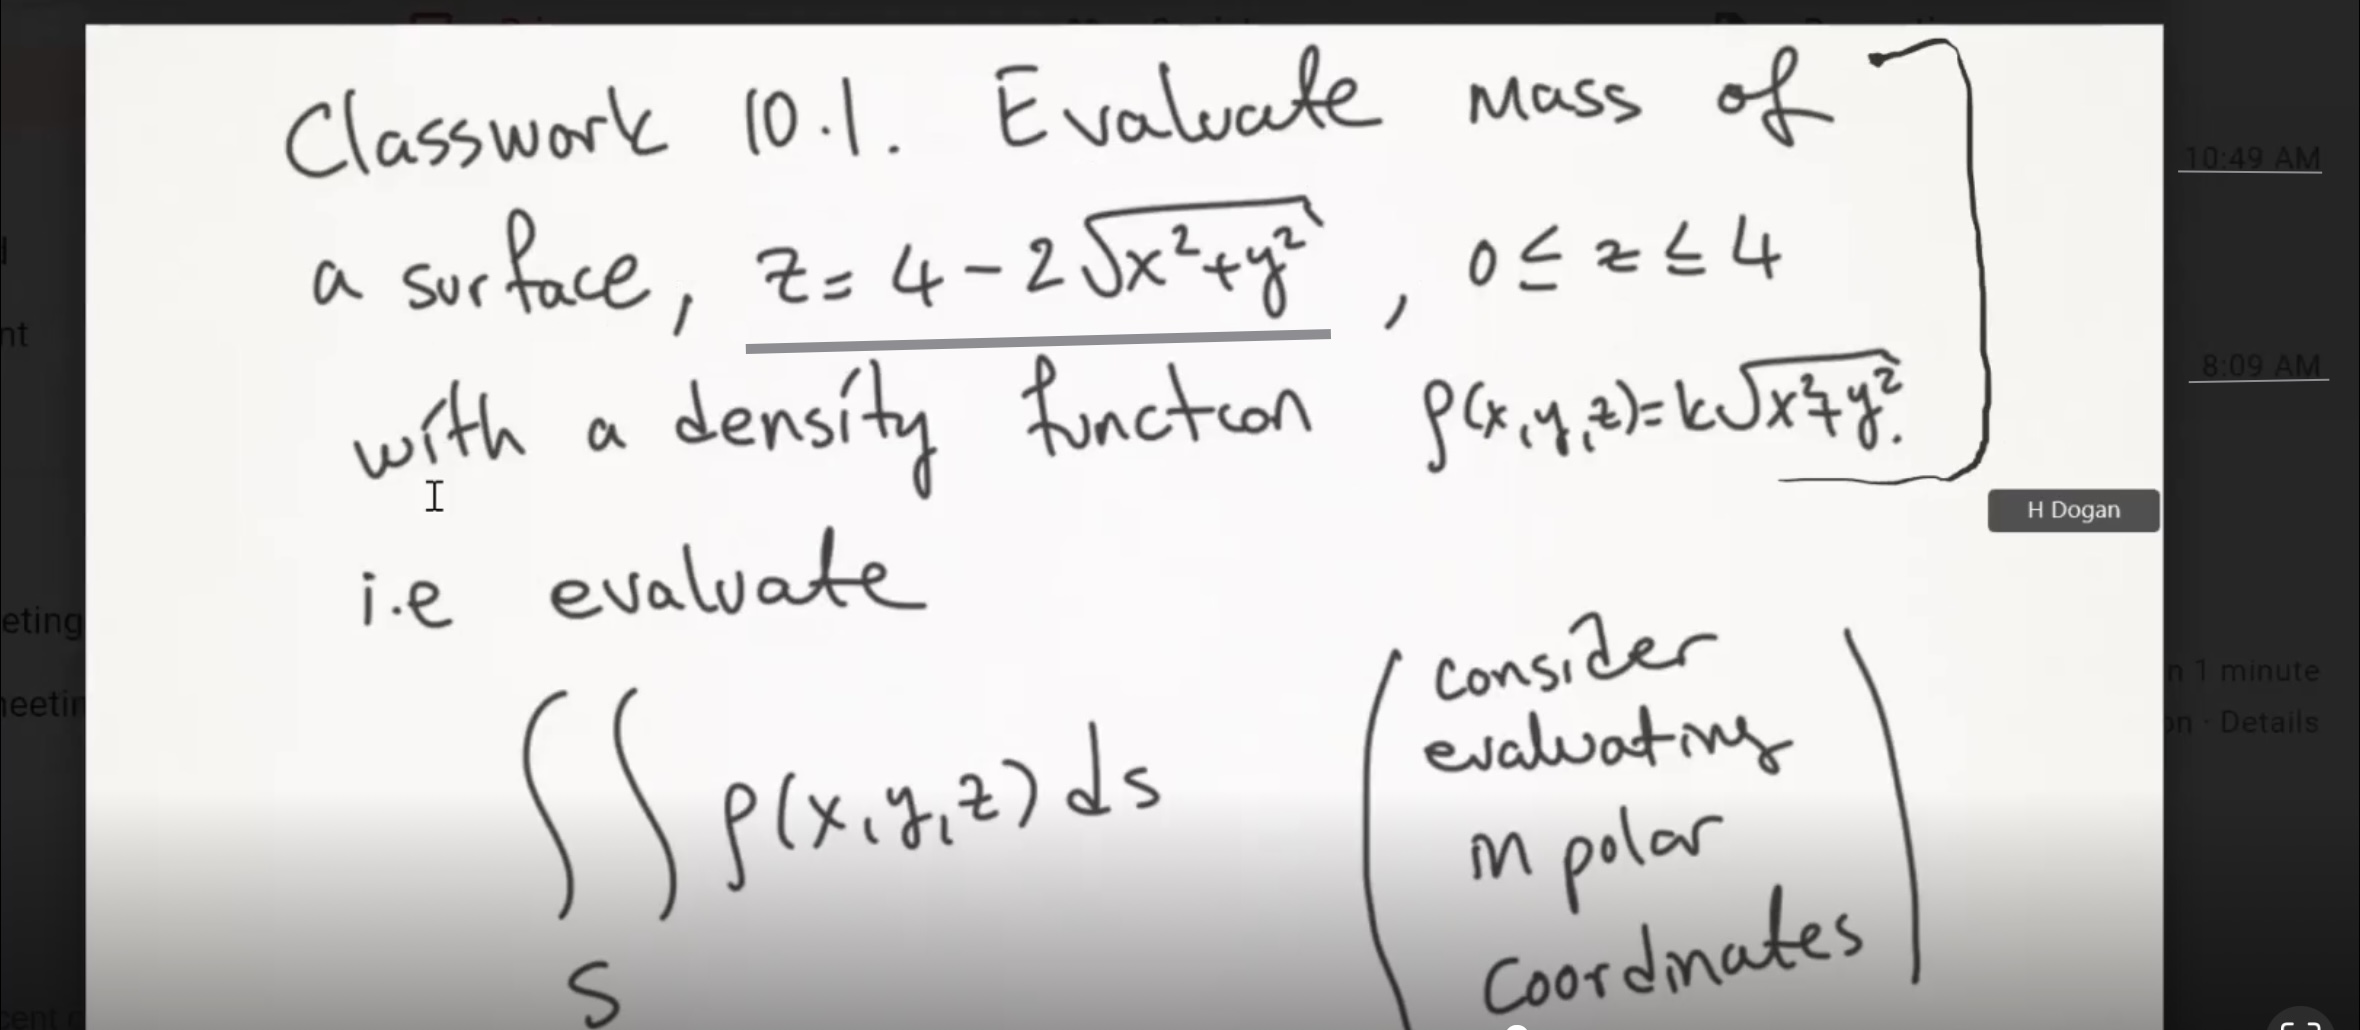 Classwork 10.1. Evaluate mass of
a surface, z = 4 - 2√(x²+y²), 0 ≤ z ≤ 4
with a density function ρ(x,y,z)=k√(x²+y²).
i.e evaluate
∫∫ ρ(x,y,z) ds
S
(consider
evaluating
in polar
coordinates)
H Dogan
10:49 AM
8:09 AM
nt
eting
n 1 minute
on · Details